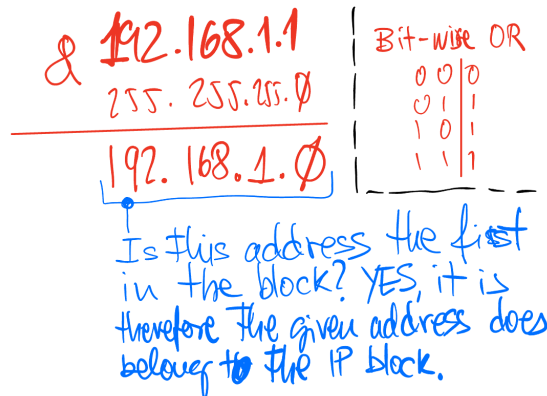 & 192.168.1.1
255.255.255.0
192.168.1.0
Bit-wise OR
0 0 0
0 1 1
1 0 1
1 1 1
Is this address the first
in the block? YES, it is
therefore the given address does
belong to the IP block.